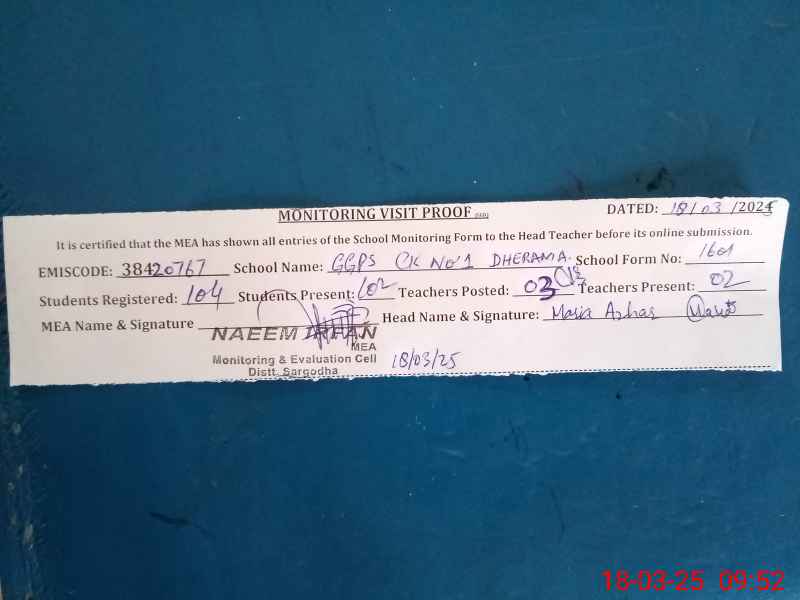 MONITORING VISIT PROOF
DATED: 18/03/2025
It is certified that the MEA has shown all entries of the School Monitoring Form to the Head Teacher before its online submission.
EMISCODE: 38420767 School Name: GGPS CK No 1 DHERAMA School Form No: 1601
Students Registered: 104 Students Present: 102 Teachers Posted: 03 Teachers Present: 02
MEA Name & Signature Head Name & Signature: Maria Azhar
NAEEM
MEA
Monitoring & Evaluation Cell
Distt. Sargodha
18/03/25
18-03-25 09:52